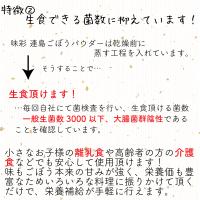 特徴②
生食できる菌数に抑えています！
味彩 連島ごぼうパウダーは乾燥前に
蒸す工程を入れています。
そうすることで…
生食頂けます！
…毎回自社にて菌検査を行い、生食頂ける菌数
一般生菌数3000以下、大腸菌群陰性であるこ
とを確認しています。
小さなお子様の離乳食や高齢者の方の介護
食などでも安心して使用頂けます！
味もごぼう本来の甘みが強く、栄養価も豊
富なためいろいろな料理に振りかけて頂くだ
けで、栄養補給が手軽に行えます。